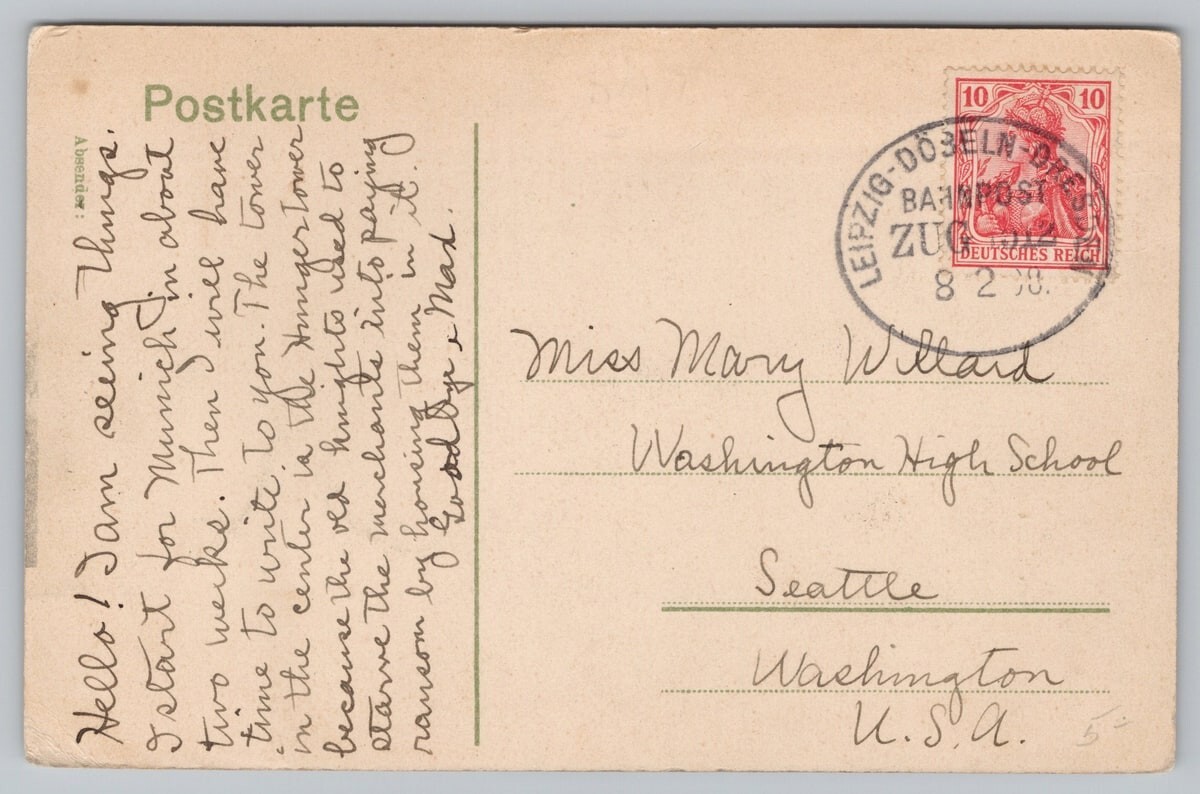 Postkarte
Absender:
Hello! I am seeing things.
I start for Munich in about
two weeks. Then I will have
time to write to you. The tower
in the center is the Hungertower
because the old knights used to
starve the merchants into paying
ransom by housing them in it.
Goodbye Mad.
10 10
DEUTSCHES REICH
LEIPZIG-DÖBELN-DRESDEN
BAHNPOST
ZUG
8 2
Miss Mary Willard
Washington High School
Seattle
Washington
U.S.A.
5-